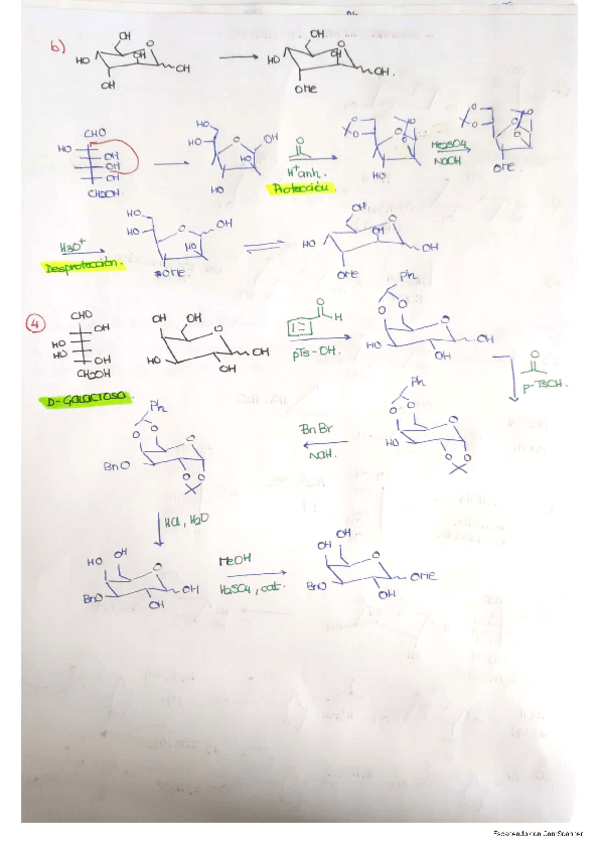 b)
OH
HO
O
OH
OH
OH
OH
HO
O
OH
OH.
OMe
CHO
HO
OH
OH
OH
CH2OH
HO
HO
O
OH
HO
HO
O
H+ anh.
Protección.
O
O
O
O
O
HO
Me2SO4
NaOH
O
O
O
O
O
OMe
H3O+
Desprotección.
HO
HO
O
OH
HO
OMe.
OH
HO
O
OH
OH
OMe
4
CHO
OH
HO
HO
OH
CH2OH
D-GALACTOSA.
OH
OH
HO
O
OH
OH
O
H
pTs-OH.
Ph
O
O
HO
O
OH
OH
O
p-TsOH.
Ph
O
O
HO
O
O
O
BnBr
NaH.
Ph
O
O
BnO
O
O
O
HCl, H2O
HO
OH
BnO
O
OH
OH
MeOH
H2SO4, cat.
OH
OH
BnO
O
OMe
OH